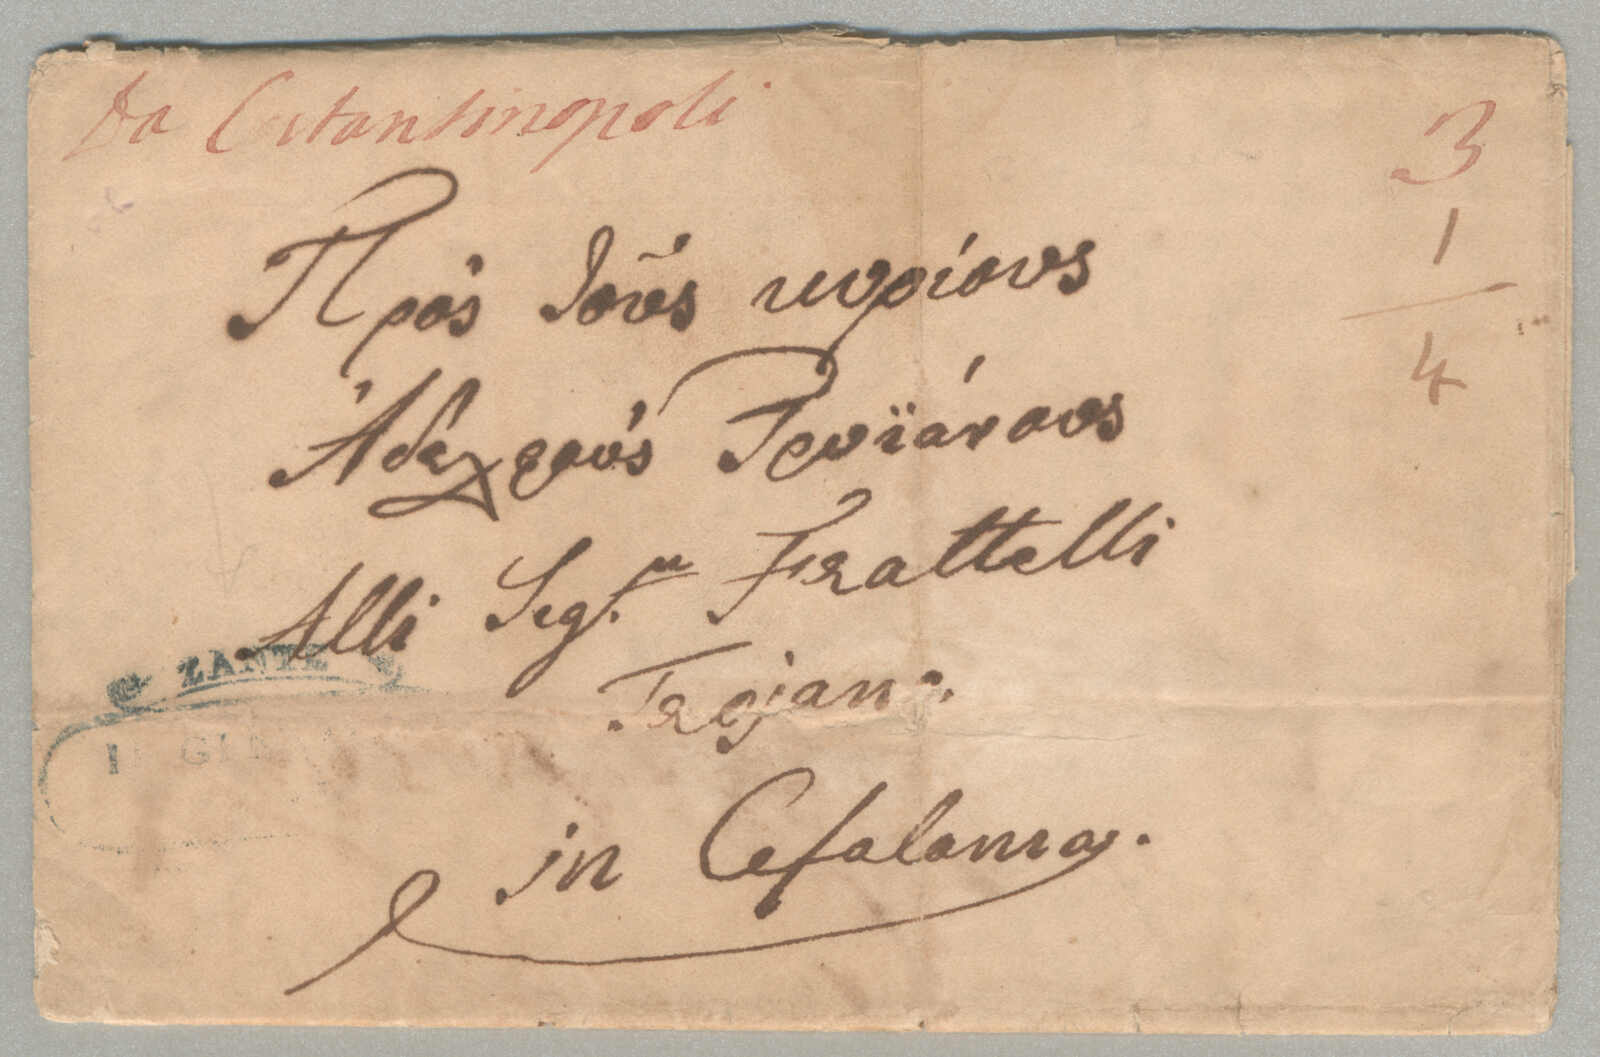 Da Costantinopoli
3
1
4
Πρὸς τοῦς κυρίους
Ἀδελφοὺς Τρογιάνους
Alli Sigri Frattelli
Trojano.
ZANTE
in Cefalonia.